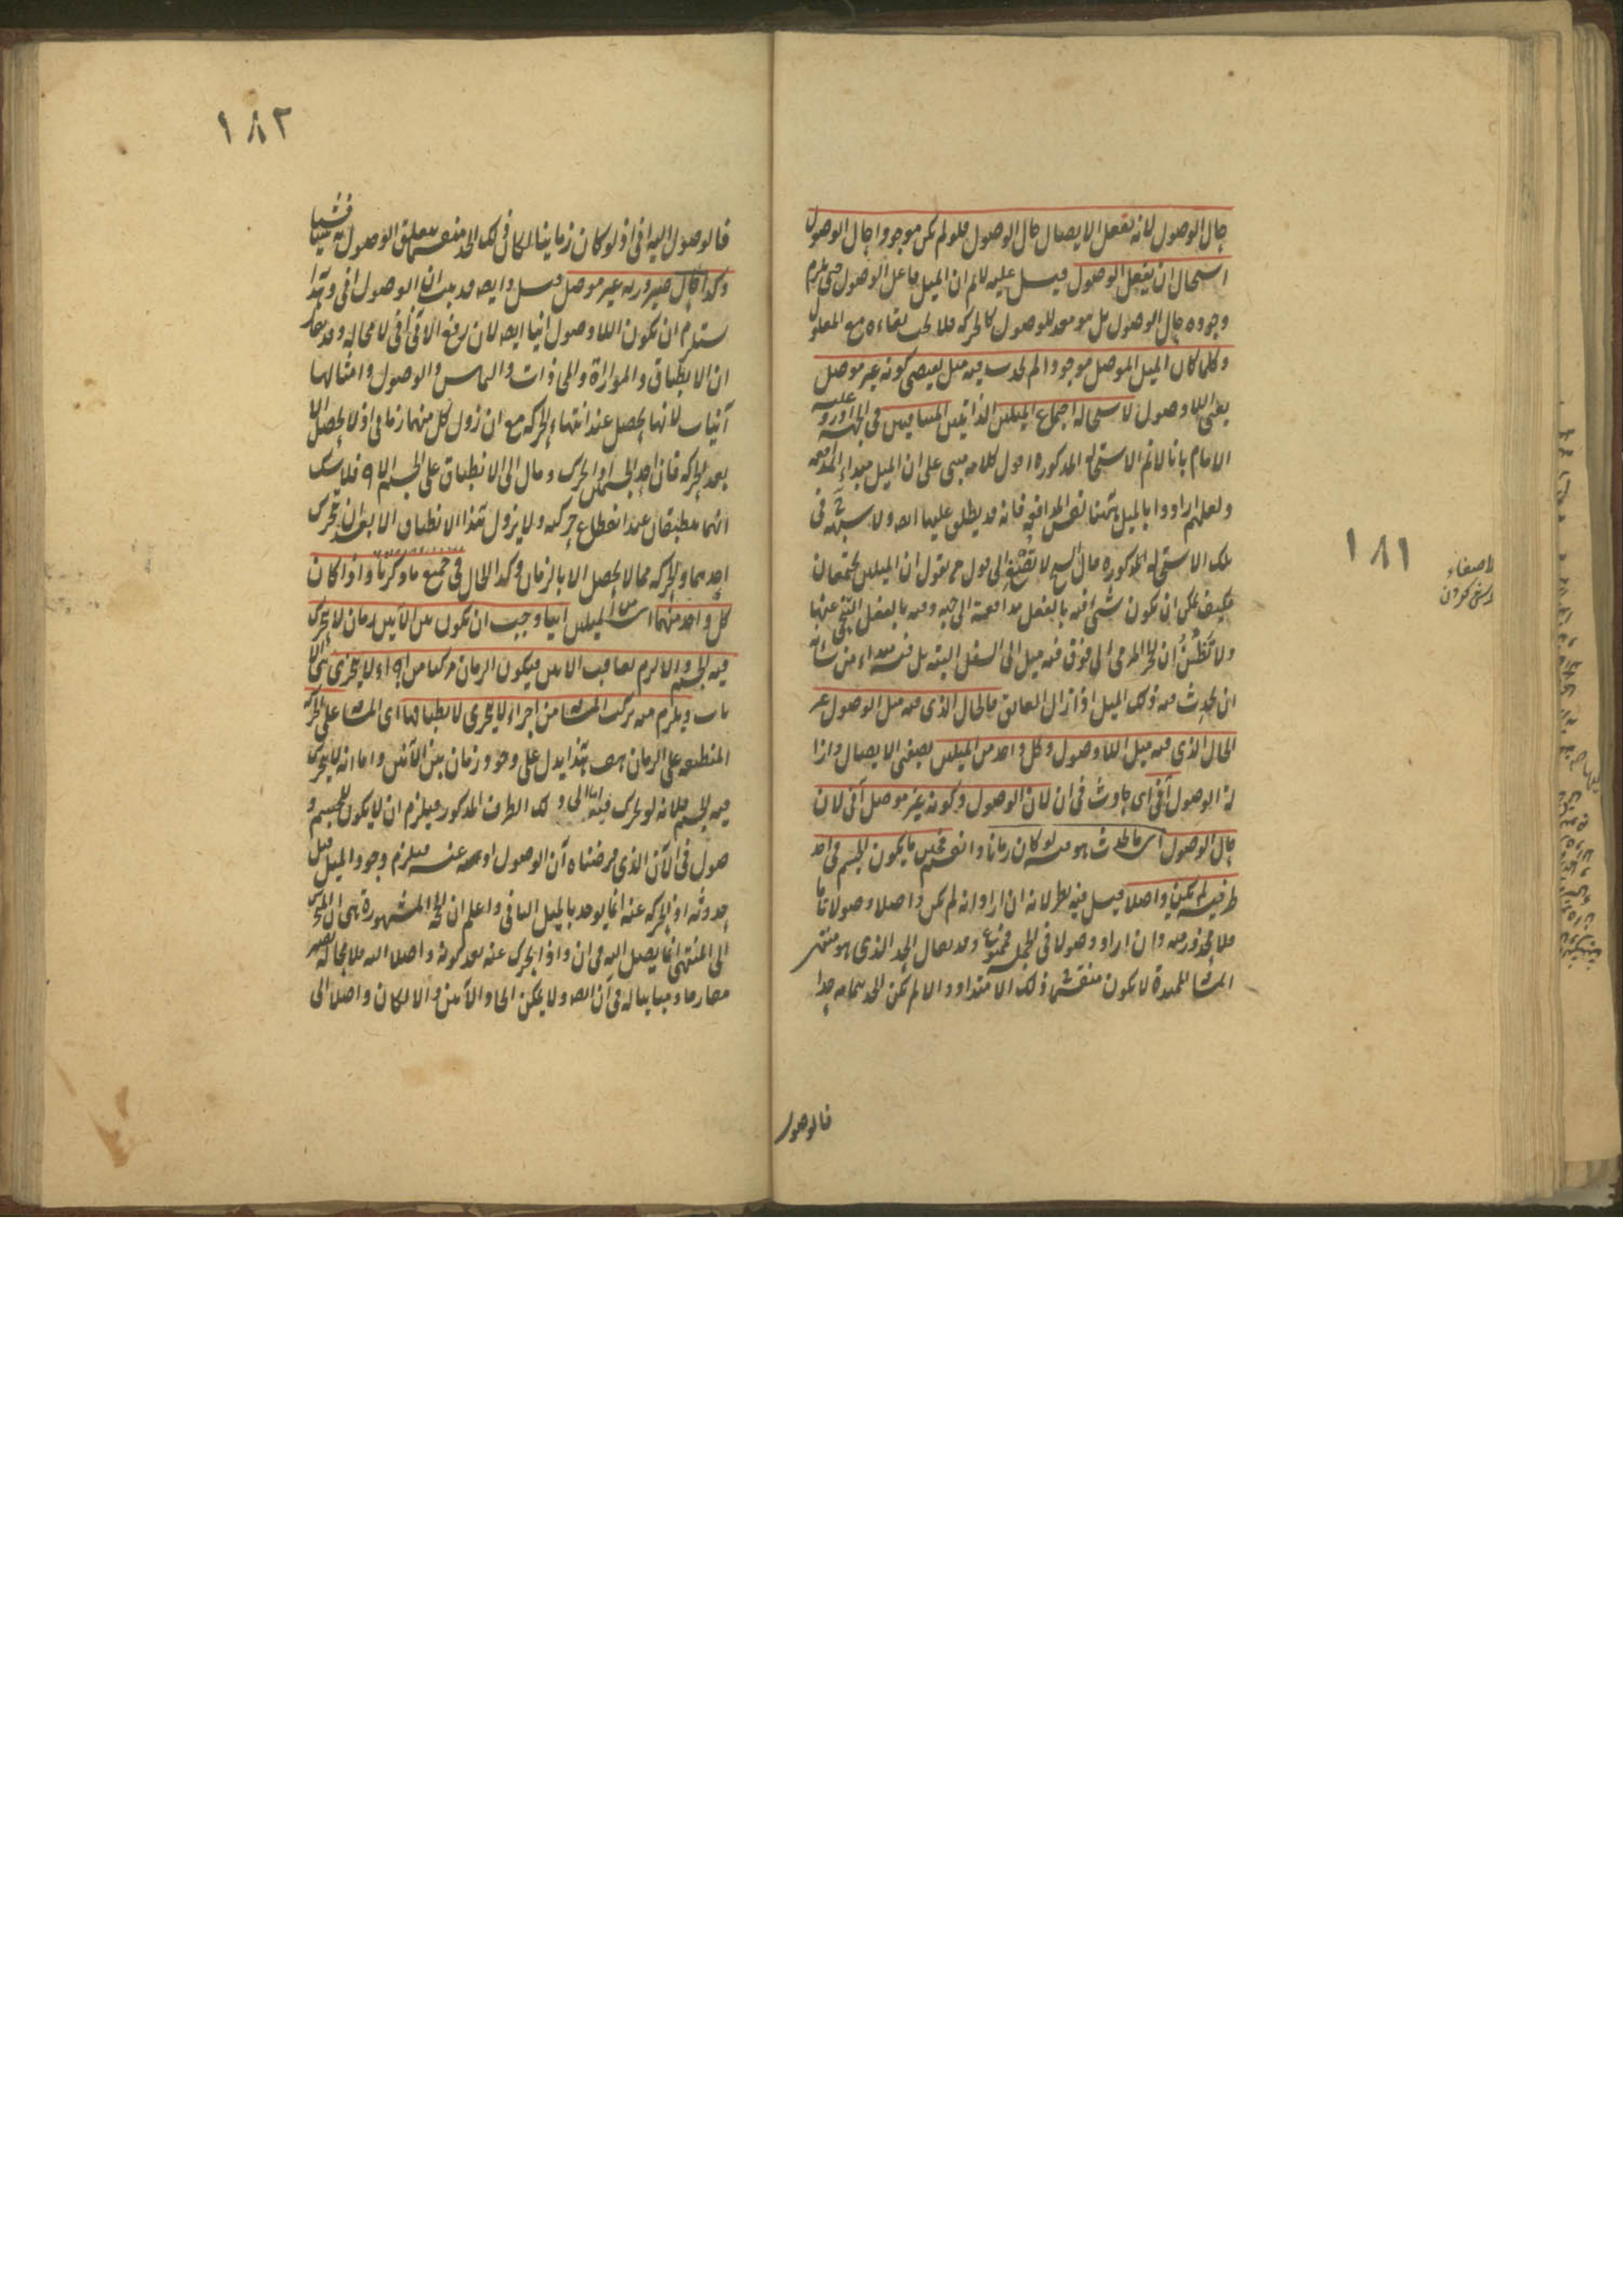 حال الوصول لانه يفعل الايصال حال الوصول فلو لم يكن موجودا حال الوصول
استحال ان يفعل الوصول قيل عليه لانم ان الميل فاعل الوصول حتى يلزم
وجوده حال الوصول بل هو معد للوصول كالحركة فلا يجب بقاءه مع المعلول
وكلما كان الميل الموصل موجودا لم يحدث فيه ميل يقتضى كونه غير موصل
يعنى اللاوصول لاستحالة اجتماع الميلين الذاتيين المتنافيين فى الجهة اورد عليه
الامام بانا لانم الاستحالة المذكورة اقول كلامه مبنى على ان الميل مبداء المدافعة
ولعلهم ارادوا بالميل ههنا نفس المدافعة فانه قد يطلق عليها ايضا ولا شبهة فى
تلك الاستحالة المذكورة قال الشيخ لا تصغ الى قول من يقول ان الميلين يجتمعان
فكيف يمكن ان يكون شئ فيه بالفعل مدافعة الى جهة وفيه بالفعل التنحى عنها
ولا تظنن ان الحجر المرمى الى فوق فيه ميل الى السفل البتة بل فيه مبداء من شانه
ان يحدث منه ذلك الميل اذا زال العائق فالحال الذى فيه ميل الوصول غير
الحال الذى فيه ميل اللاوصول وكل واحد من الميلين بصفتى الايصال وازا
لة الوصول آنى اى حادث فى ان لان الوصول وكونه غير موصل آنى لان
حال الوصول اى ما يحدث هو فيه لو كان زمانا وانقسم فحين ما يكون الجسم فى احد
طرفيه لم يكن واصلا قيل فيه نظر لانه ان اراد انه لم يكن واصلا وصولا تاما
فلا محذور فيه وان اراد وصولا فى الجملة فممنوع وقد يقال الحد الذى هو منتهى
المسافة الممتدة لا يكون منقسما فى ذلك الامتداد والا لم يكن الحد بتمامه حدا
فالوصول
١٨١
لا صغاء
كوش كردن
١٨٢
فالوصول اليه آنى اذ لو كان زمانيا لكان فى ذلك الحد منقسما لتعلق الوصول به شيئا فشيئا
وكذا حال صيرورته غير موصل قيل وايضا قد ثبت ان الوصول آنى وهذا
يستلزم ان يكون اللاوصول آنيا ايضا لان رفع الآنى آنى لا محالة وفيه بحث
ان الانطباق والموازاة والمحاذات والتماس والوصول وامثالها
آنيات لانها تحصل عند انتهاء الحركة مع ان زوال كل منها زمانى اذ لا يحصل الا
بعد الحركة فان احد الجسمين اذا تحرك ومال الى الانطباق على الجسم الاخر فلا شك
انهما ينطبقان عند انقطاع حركته ولا يزول هذا الانطباق الا بعد ان يتحرك
احدهما والحركة مما لا يحصل الا بالزمان وكذا الحال فى جميع ما ذكرنا واذا كان
كل واحد منهما اى من الميلين آنيا وجب ان يكون بين الآنين زمان لا يتحرك
فيه الجسم والا لزم تعاقب الآنين فيكون الزمان مركبا من اجزاء لا يتجزى هى الآ
نات ويلزم منه تركب المسافة من اجزاء لا يتجزى لانطباقها اى المسافة على الحركة
المنطبقة على الزمان هف هذا يدل على وجود زمان بين الآنين واما انه لا يتحرك
فيه الجسم فلانه لو تحرك فيه اما الى ذلك الطرف المذكور فيلزم ان لا يكون للجسم و
صول فى الآن الذى فرضناه آن الوصول او عنه فيلزم وجود الميل قبل
حدوثه اذ الحركة عنه انما يوجد بالميل الثانى واعلم ان الحجة المشهورة هى ان المتحرك
الى المنتهى انما يصل اليه فى ان واذا تحرك عنه بعد كونه واصلا اليه فلا محالة يصير
مفارقا ومباينا له فى آن ايضا ولا يمكن اتحاد الآنين والا لكان واصلا الى